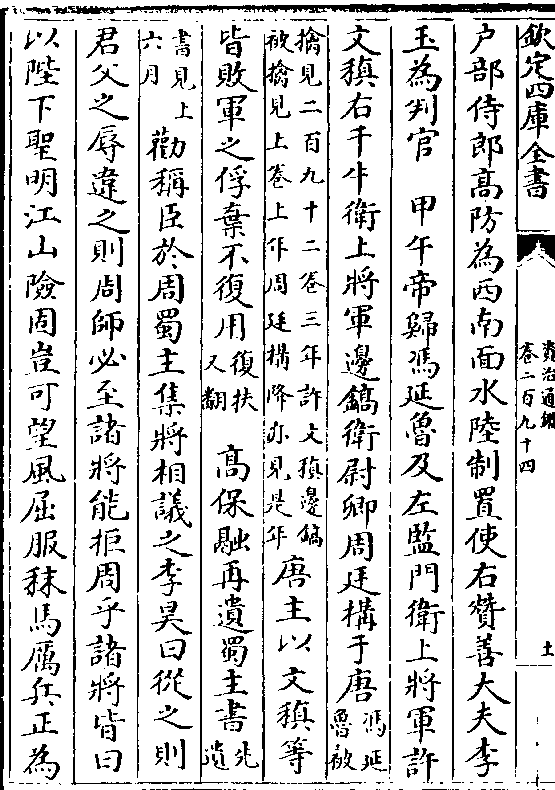 欽定四庫全書
資治通鑑
卷二百九十四
土
户部侍郎髙防為西南面水陸制置使右贊善大夫李
玉為判官　甲午帝歸馮延魯及左監門衛上將軍許
文稹右千牛衛上將軍邊鎬衛尉卿周廷構于唐馮延
魯被
擒見二百九十二卷三年許文稹邊鎬
被擒見上卷上年周廷構降亦見是年
唐主以文稹等
皆敗軍之俘棄不復用復扶
又翻
髙保融再遺蜀主書先
遺
書見上
六月
勸稱臣於周蜀主集將相議之李昊曰從之則
君父之辱違之則周師必至諸將能拒周乎諸將皆曰
以陛下聖明江山險固豈可望風屈服秣馬厲兵正為